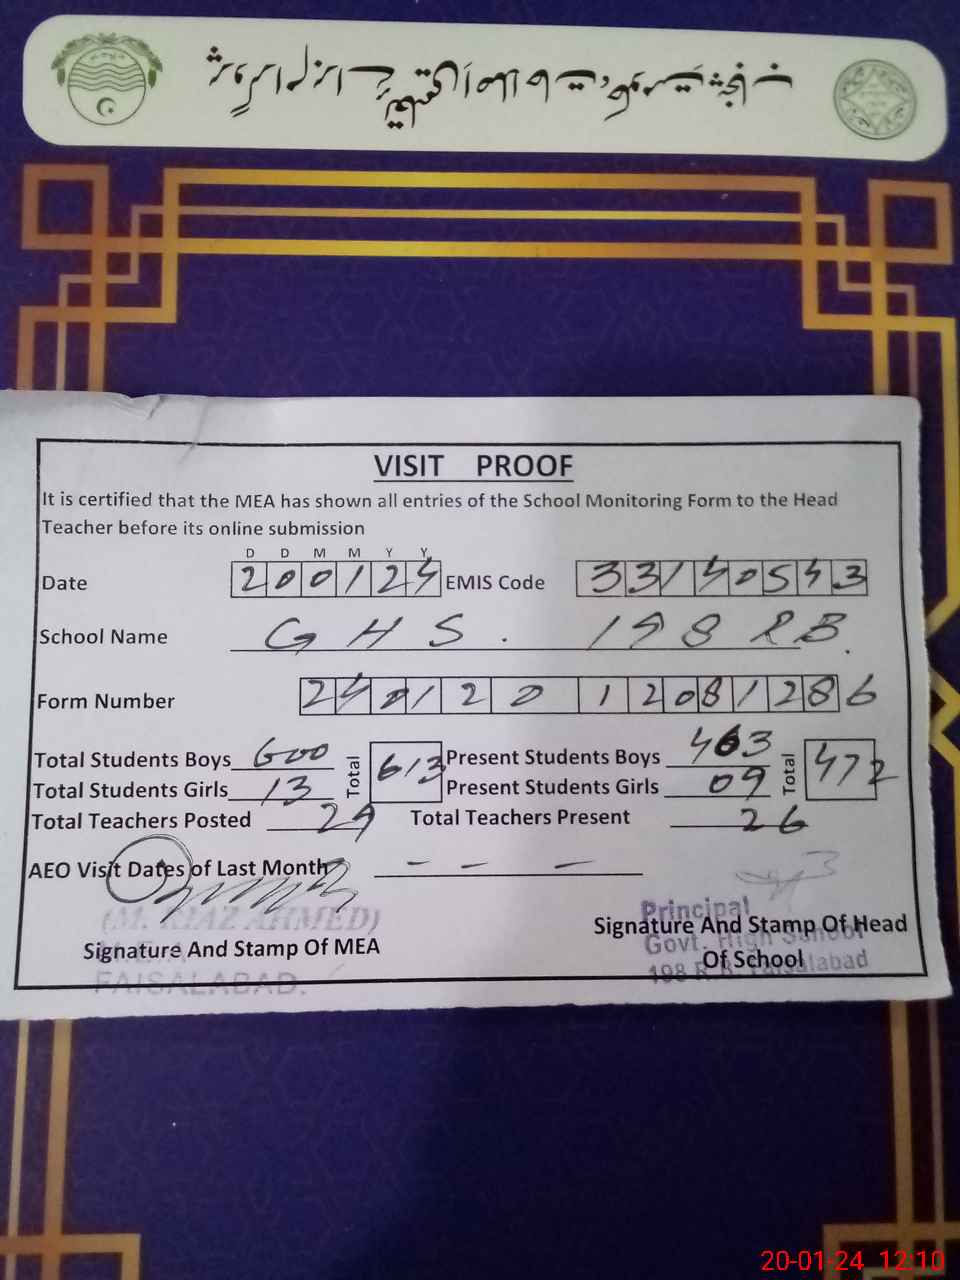 VISIT PROOF
It is certified that the MEA has shown all entries of the School Monitoring Form to the Head
Teacher before its online submission
D D M M Y Y
Date 200124 EMIS Code 33140543
School Name GHS. 198 RB.
Form Number 24012012081286
Total Students Boys 600 Total 613 Present Students Boys 463 Total 472
Total Students Girls 13 Present Students Girls 09
Total Teachers Posted 29 Total Teachers Present 26
AEO Visit Dates of Last Month - - -
(M. RIAZ AHMED)
M.E.A
Signature And Stamp Of MEA
FAISALABAD.
Principal
Signature And Stamp Of Head
Govt. High School
Of School
198 R.B. Faisalabad
20-01-24 12:10